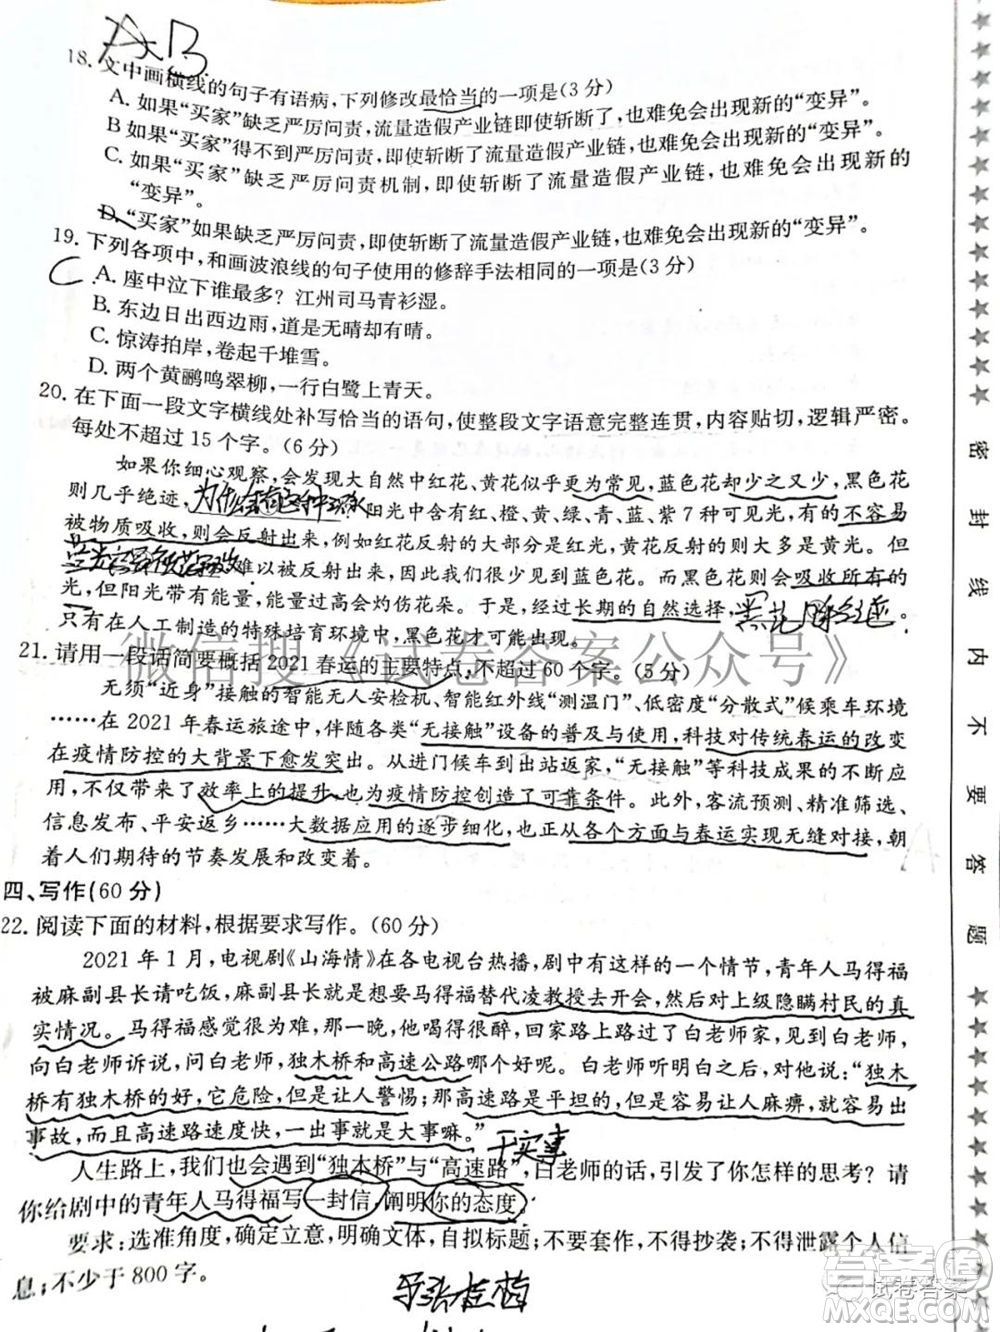 A B
18. 文中画横线的句子有语病,下列修改最恰当的一项是(3 分)
A. 如果“买家”缺乏严厉问责,流量造假产业链即使斩断了,也难免会出现新的“变异”。
B 如果“买家”得不到严厉问责,即使斩断了流量造假产业链,也难免会出现新的“变异”。
C. 如果“买家”缺乏严厉问责机制,即使斩断了流量造假产业链,也难免会出现新的
“变异”。
D. “买家”如果缺乏严厉问责,即使斩断了流量造假产业链,也难免会出现新的“变异”。
19. 下列各项中,和画波浪线的句子使用的修辞手法相同的一项是(3 分)
C A. 座中泣下谁最多? 江州司马青衫湿。
B. 东边日出西边雨,道是无晴却有晴。
C. 惊涛拍岸,卷起千堆雪。
D. 两个黄鹂鸣翠柳,一行白鹭上青天。
20. 在下面一段文字横线处补写恰当的语句,使整段文字语意完整连贯,内容贴切,逻辑严密。
每处不超过 15 个字。(6 分)
如果你细心观察,会发现大自然中红花、黄花似乎更为常见,蓝色花却少之又少,黑色花
则几乎绝迹, 阳光中含有红、橙、黄、绿、青、蓝、紫 7 种可见光,有的不容易
被物质吸收,则会反射出来,例如红花反射的大部分是红光,黄花反射的则大多是黄光。
难以被反射出来,因此我们很少见到蓝色花。而黑色花则会吸收所有的
光,但阳光带有能量,能量过高会灼伤花朵。于是,经过长期的自然选择, 。
只有在人工制造的特殊培育环境中,黑色花才可能出现。
21. 请用一段话简要概括 2021 春运的主要特点,不超过 60 个字。(5 分)
微信搜《试卷答案公众号》
无须“近身”接触的智能无人安检机、智能红外线“测温门”、低密度“分散式”候乘车环境
……在 2021 年春运旅途中,伴随各类“无接触”设备的普及与使用,科技对传统春运的改变
在疫情防控的大背景下愈发突出。从进门候车到出站返家,“无接触”等科技成果的不断应
用,不仅带来了效率上的提升,也为疫情防控创造了可靠条件。客流预测、精准筛选、
信息发布、平安返乡……大数据应用的逐步细化,也从各个方面与春运实现无缝对接,朝
着人们期待的节奏发展和改变着。
四、写作(60 分)
22. 阅读下面的材料,根据要求写作。(60 分)
2021 年 1 月,电视剧《山海情》在各电视台热播,剧中有这样的一个情节,青年人马得福
被麻副县长请吃饭,麻副县长就是想要马得福替代凌教授去开会,然后对上级隐瞒村民的真
实情况。马得福感觉很为难,那一晚,他喝得很醉,回家路上路过了白老师家,见到白老师便
向白老师诉说,问白老师,独木桥和高速公路哪个好呢。白老师听明白之后,对他说:“独木
桥有独木桥的好,它危险,但是让人警惕;那高速路是平坦的,但是容易让人麻痹,就容易出
事故,而且高速路速度快,一出事就是大事嘛。” 干实事
人生路上,我们也会遇到“独木桥”与“高速路”,白老师的话,引发了你怎样的思考? 请
你给剧中的青年人马得福写一封信,阐明你的态度。
要求:选准角度,确定立意,明确文体,自拟标题;不要套作,不得抄袭;不得泄露个人信
息;不少于 800 字。
密 封 线 内 不 要 答 题
答案圈
试卷答案
MXQE.COM